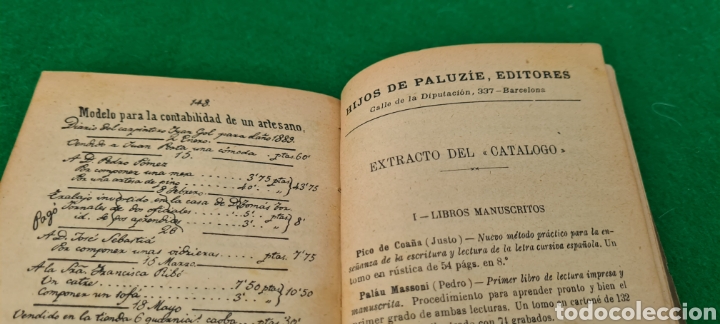 143.
Modelo para la contabilidad de un artesano.
Diario del carpintero Juan Gol para el año 1889.
2 Enero.
Vendido a Juan Rota una cómoda ptas 60'
15.
A D. Pedro Gómez
Por componer una mesa 3'75 ptas
Por una artesa de pino 40' 43'75
8 Febrero.
Trabajo invertido en la casa de D. Tomás
Pago
Jornales de dos oficiales 5' ptas
id. de dos aprendices 3' 8'
26
A D. José Sebastiá
Por componer unas vidrieras ptas. 7'75
15 Marzo
A la Sra. Francisca Ribé
Un catre 7'50 ptas
Componer un sofá 3' 10'50
18 Mayo
Vendido en la tienda 6 caoba ptas
HIJOS DE PALUZÍE, EDITORES
Calle de la Diputación, 337-Barcelona
EXTRACTO DEL «CATALOGO»
I - LIBROS MANUSCRITOS
Pico de Coaña (Justo) - Nuevo método práctico para la en-
señanza de la escritura y lectura de la letra cursiva española. Un
tomo en rústica de 54 págs. en 8.º
Paláu Massoni (Pedro) - Primer libro de lectura impresa y
manuscrita. Procedimiento para aprender pronto y bien el
primer grado de ambas lecturas. Un tomo en cartoné de 132
con 71 grabados.
todocoleccion